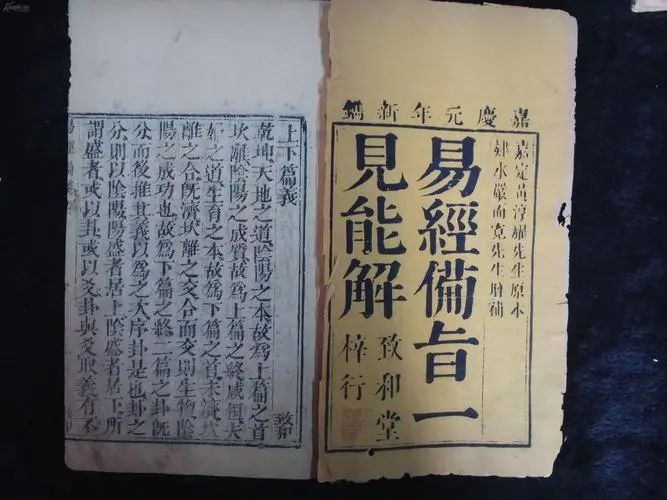 嘉慶元年新鐫
嘉定黃淳耀先生原本
嚴而寬先生增補
易經備旨一
見能解
致和堂
梓行
上下篇義
乾坤天地之道陰陽之本故為上篇之首
坎離陰陽之成質故為上篇之終咸恒夫
婦之道生育之本故為下篇之首未濟坎
離之合既濟坎離之交合而交則生物陰
陽之成功也故為下篇之終二篇之卦既
分而後推其義以為之次序卦是也卦之
分則以陰陽陽盛者居上陰盛者居下所
謂盛者或以卦或以爻卦與爻取義有不
致和